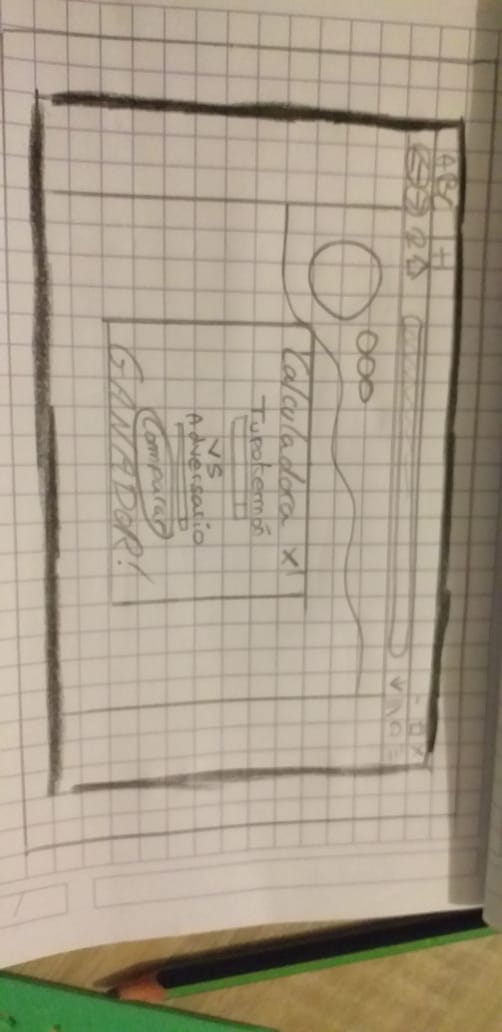 Calculadora x
Tupokemón
VS
Adversario
Comparar
GANADOR!